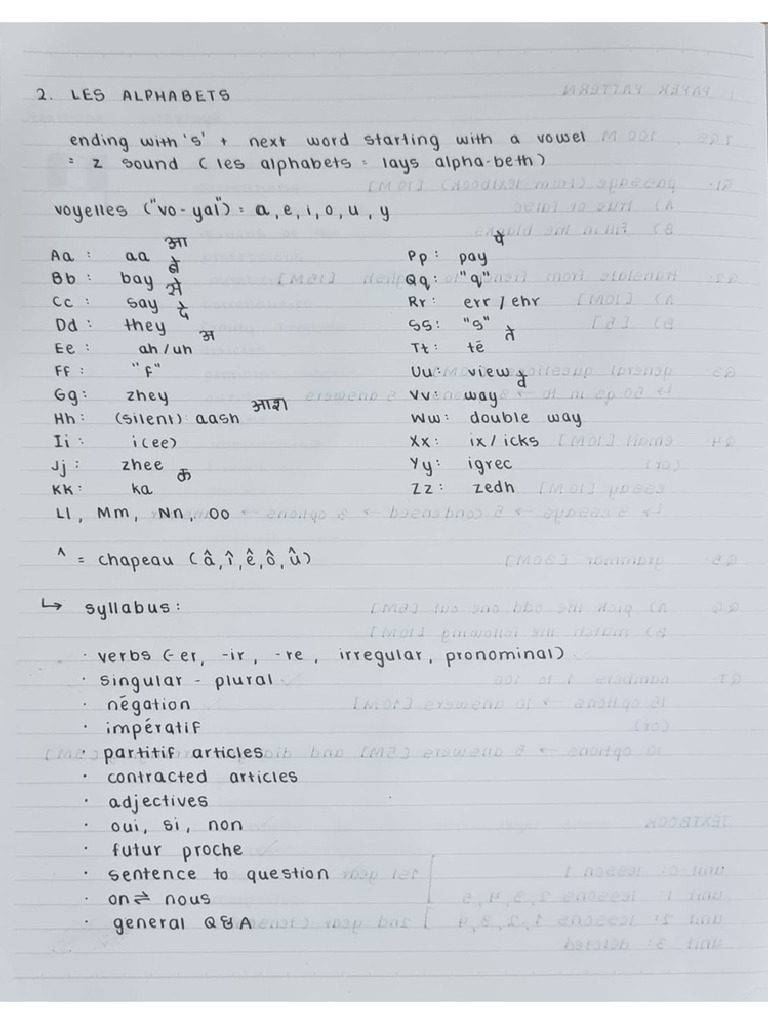 2. LES ALPHABETS
ending with 's' + next word starting with a vowel
= z sound ( les alphabets = lays alpha-beth )
voyelles ("vo-yal") = a, e, i, o, u, y
Aa : aa आ
Bb : bay बे
Cc : say से
Dd : they दे
Ee : ah / uh अ
Ff : "f"
Gg : zhey
Hh : (silent) : aash आश
Ii : i (ee)
Jj : zhee
Kk : ka क
Ll, Mm, Nn, Oo
Pp : pay पे
Qq : "q"
Rr : err / ehr
Ss : "s"
Tt : tē ते
Uu : view
Vv : way
Ww : double way
Xx : ix / icks
Yy : igrec
Zz : zedh
^ = chapeau ( â, î, ê, ô, û )
↳ syllabus :
· verbs (-er, -ir, -re, irregular, pronominal)
· singular - plural
· négation
· impératif
· partitif articles
· contracted articles
· adjectives
· oui, si, non
· futur proche
· sentence to question
· on ⇌ nous
· general Q&A